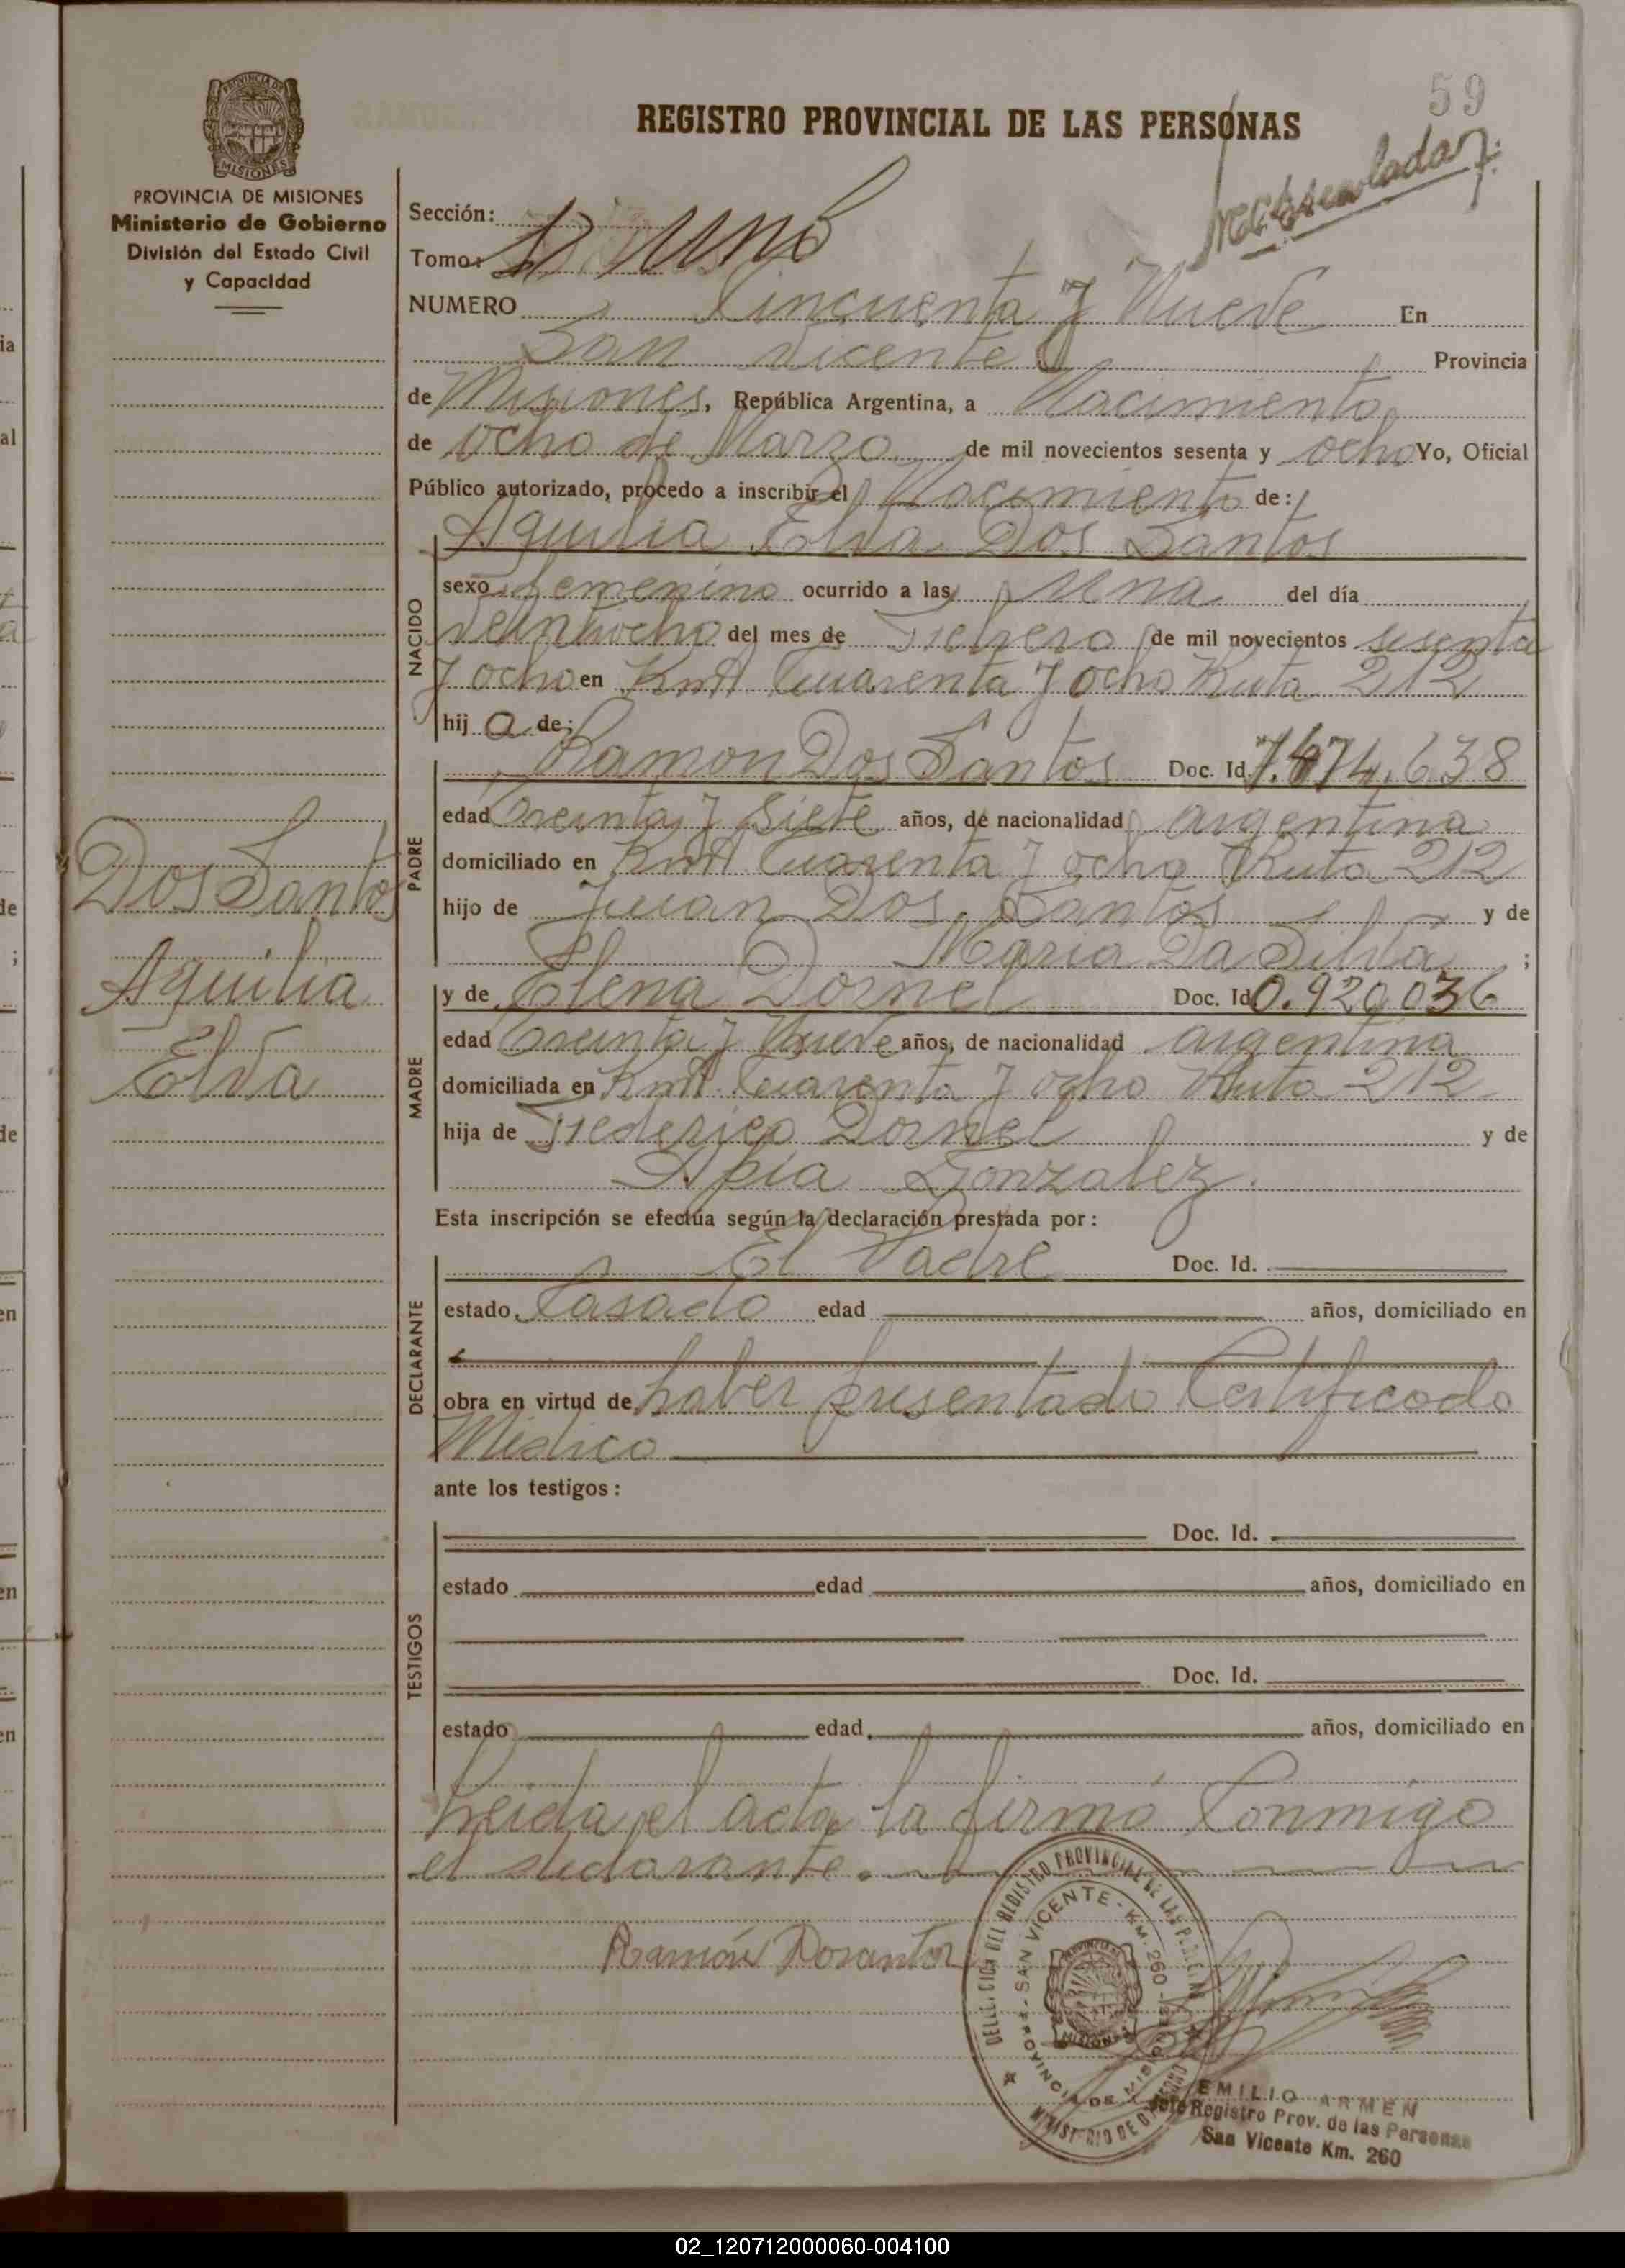 59
REGISTRO PROVINCIAL DE LAS PERSONAS
PROVINCIA DE MISIONES
Ministerio de Gobierno
División del Estado Civil
y Capacidad
Sección:
Tomo: Uno
NUMERO Cincuenta y Nueve En
San Vicente Provincia
de Misiones, República Argentina, a Nacimiento
de ocho de Marzo de mil novecientos sesenta y ocho Yo, Oficial
Público autorizado, procedo a inscribir el Nacimiento de:
Aquilia Elva Dos Santos
NACIDO
sexo femenino ocurrido a las Una del día
veintiocho del mes de Febrero de mil novecientos sesenta
y ocho en Kmt Cuarenta y ocho Ruta 212
hij a de:
PADRE
Ramon Dos Santos Doc. Id. 7.474.638
edad treinta y siete años, de nacionalidad argentina
domiciliado en Kmt Cuarenta y ocho Ruta 212
hijo de Juan Dos Santos y de
Maria Da Silva ;
MADRE
y de Elena Dornel Doc. Id. 0.920.036
edad treinta y Nueve años, de nacionalidad argentina
domiciliada en Kmt Cuarenta y ocho Ruta 212
hija de Federico Dornel y de
Apia Gonzalez.
Dos Santos
Aquilia
Elva
Esta inscripción se efectúa según la declaración prestada por:
DECLARANTE
El Padre Doc. Id.
estado Casado edad años, domiciliado en
obra en virtud de haber presentado Certificado
Medico
ante los testigos:
TESTIGOS
Doc. Id.
estado edad años, domiciliado en
Doc. Id.
estado edad años, domiciliado en
Leida el acta la firmó Conmigo
el declarante.
Ramón Dosantos
REGISTRO PROVINCIAL DE LAS
SAN VICENTE - KM. 260
PROVINCIA DE MISIONES
EMILIO ARMEN
Jefe Registro Prov. de las Personas
San Vicente Km. 260
02_120712000060-004100